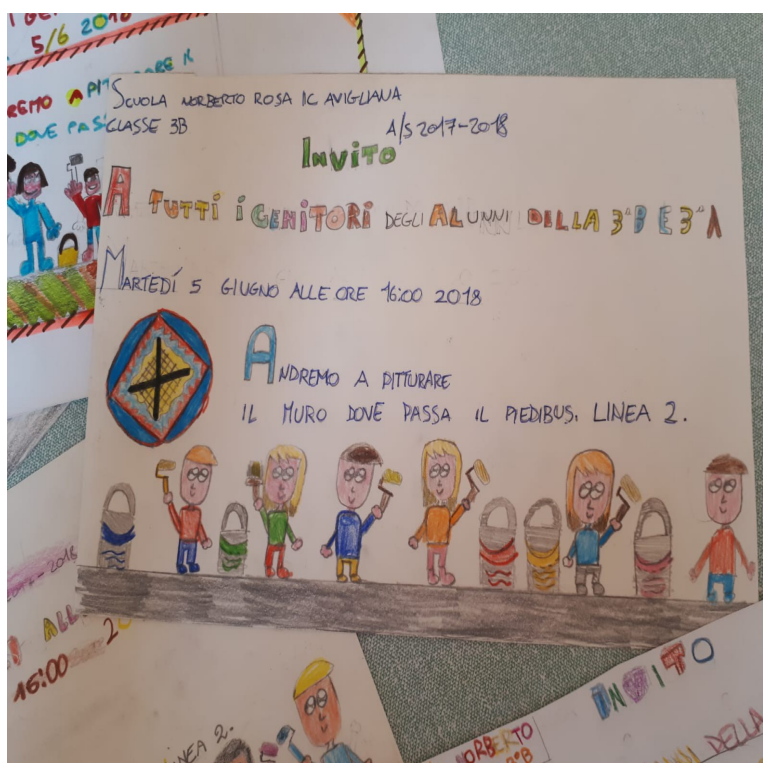 I GE
5/6 2018
REMO A PITTURARE IL
DOVE PASS
SCUOLA NORBERTO ROSA IC AVIGLIANA
CLASSE 3B
A/S 2017-2018
INVITO
A TUTTI I GENITORI DEGLI ALUNNI DELLA 3ªB E 3ªA
MARTEDÍ 5 GIUGNO ALLE ORE 16:00 2018
ANDREMO A PITTURARE
IL MURO DOVE PASSA IL PIEDIBUS. LINEA 2.
2018
ALL
16:00
NEA 2.
INVITO
NORBERTO
3°B
DELLA